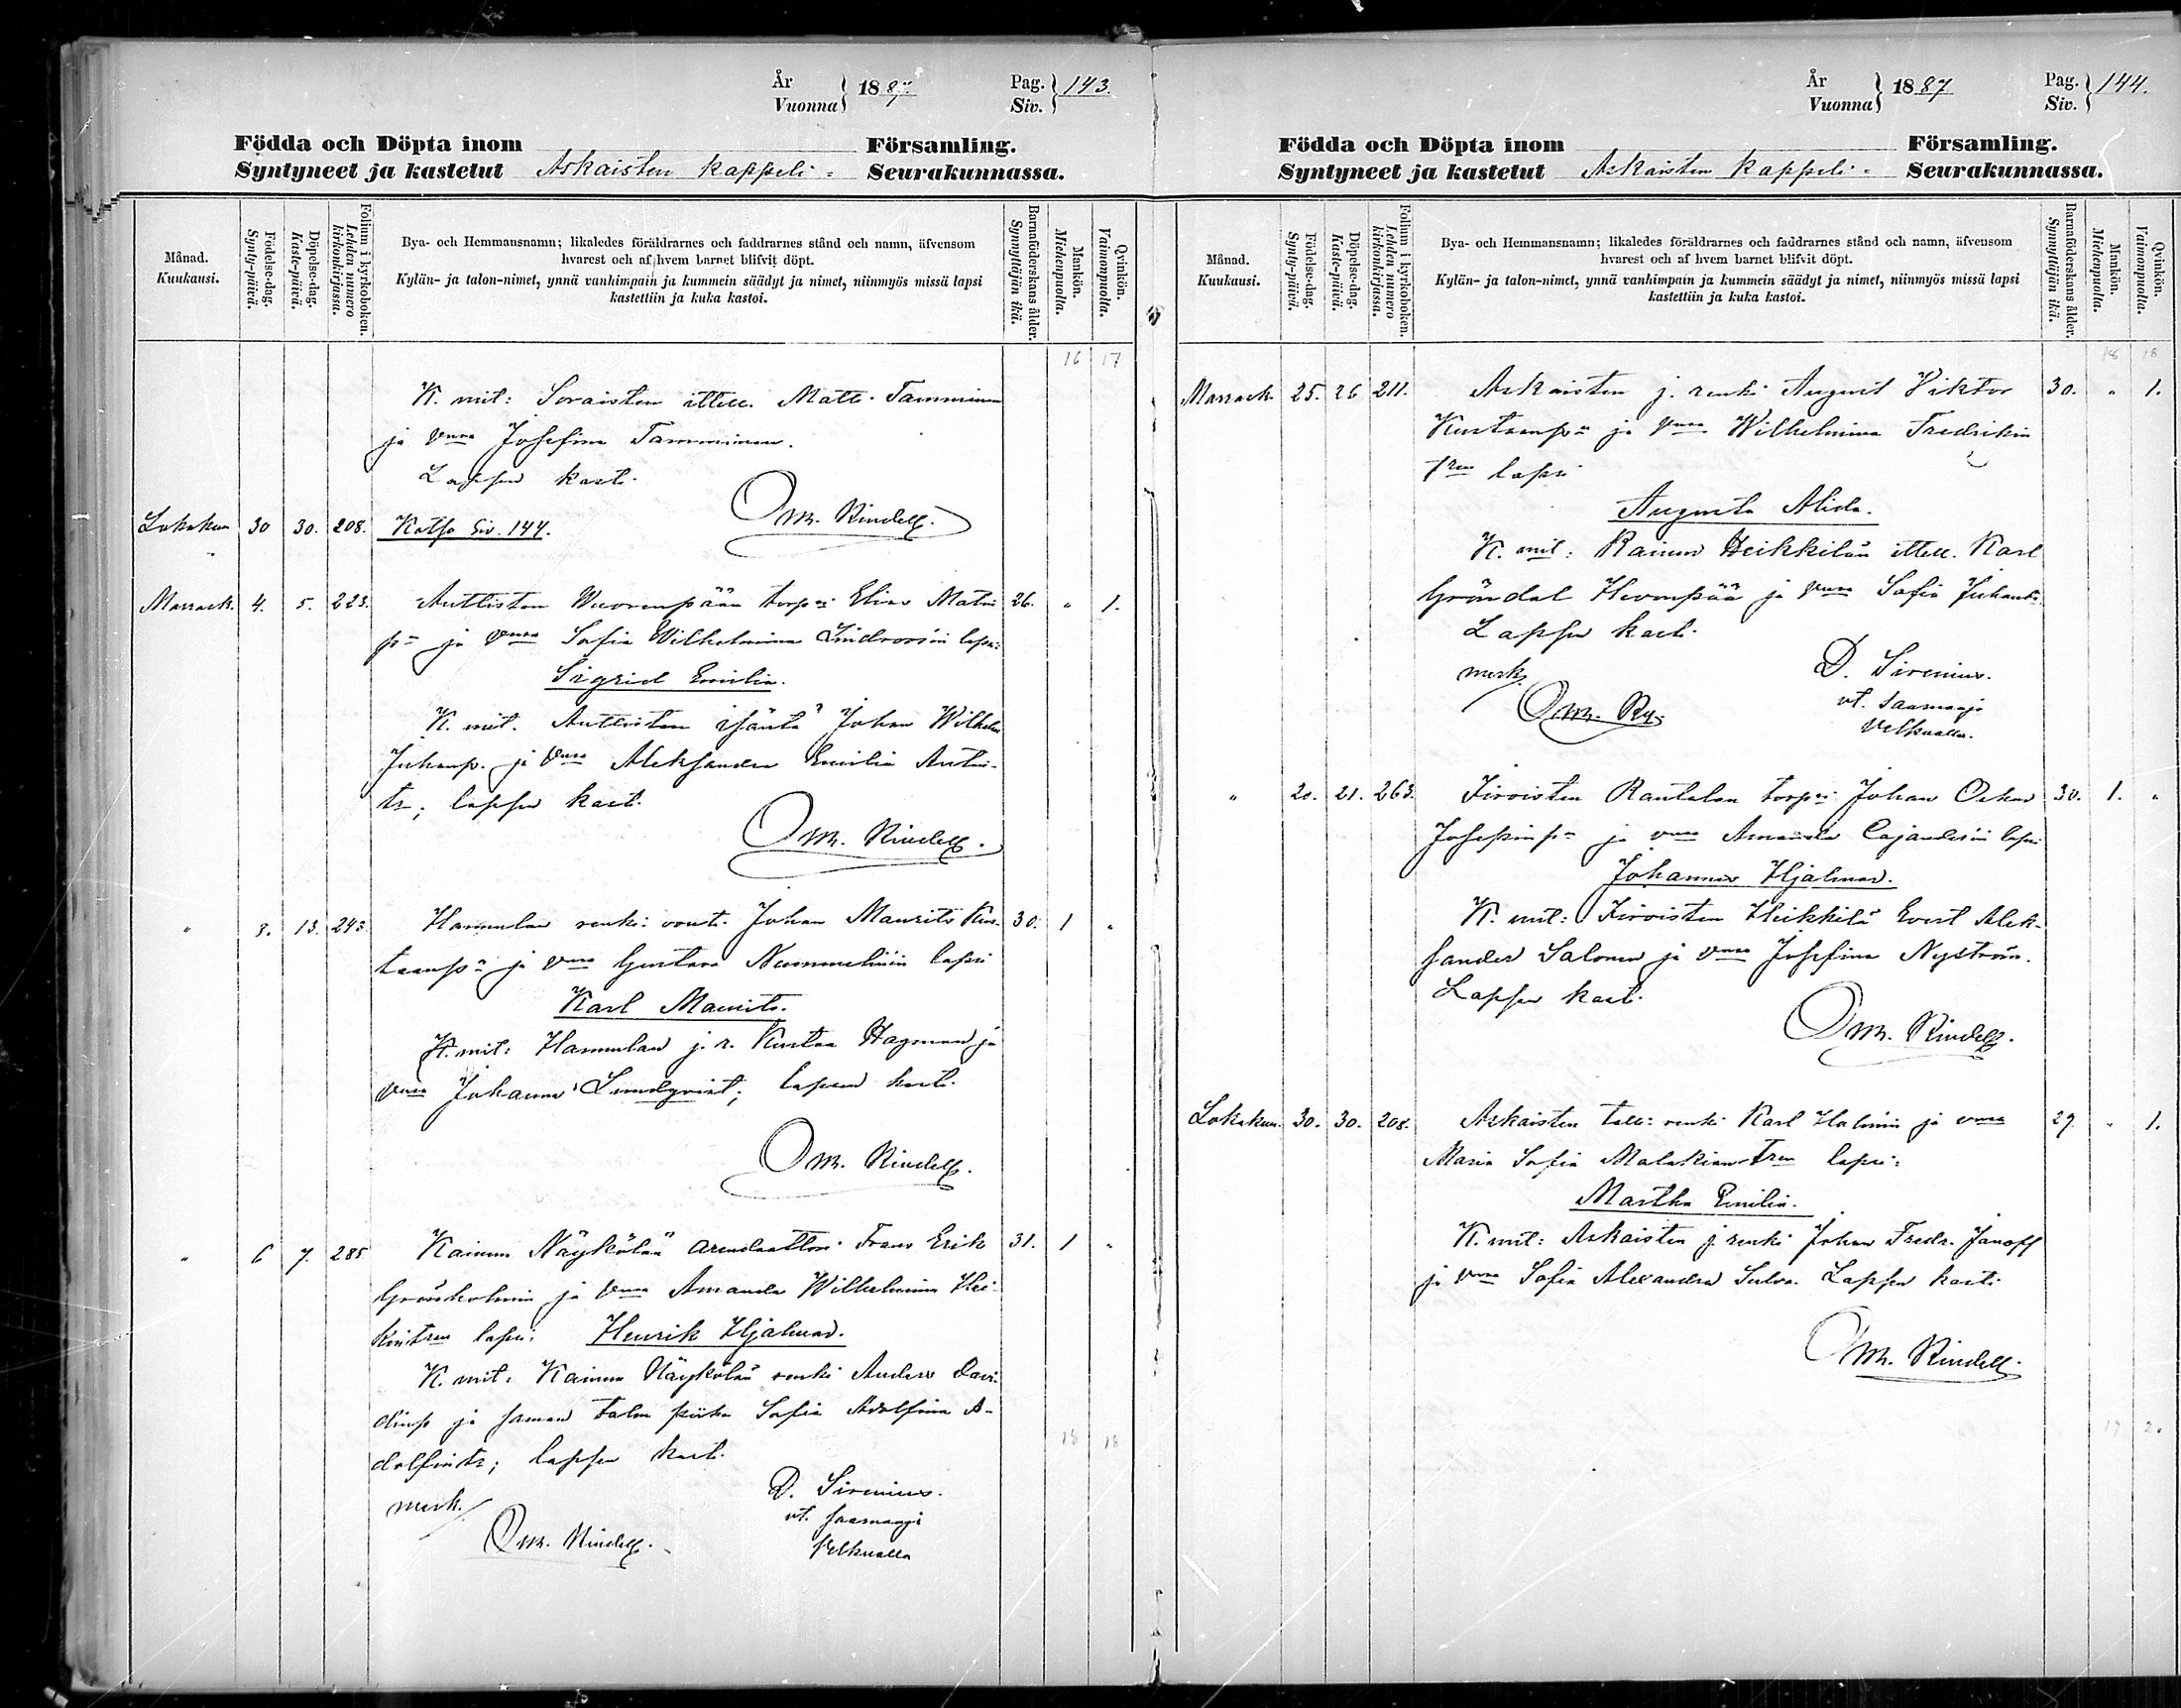 År
Vuonna } 1887 Pag. Siv. } 143.
Födda och Döpta inom Församling.
Syntyneet ja kastetut Askaisten kappeli- Seurakunnassa.
Månad. Kuukausi.
Födelse-dag. Synty-päivä.
Döpelse-dag. Kaste-päivä.
Folium i kyrkoboken. Lehden numero kirkonkirjassa.
Bya- och Hemmansnamn; likaledes föräldrarnes och faddrarnes stånd och namn, äfvensom
hvarest och af hvem barnet blifvit döpt.
Kylän- ja talon-nimet, ynnä vanhimpain ja kummein säädyt ja nimet, niinmyös missä lapsi
kastettiin ja kuka kastoi.
Barnaföderskans ålder. Synnyttäjän ikä.
Mankön. Miehenpuolta.
Qvinkön. Vaimonpuolta.
16 17
K. mit: Soraisten ittell. Matts Tamminen
ja vmo Josefina Tamminen.
Lapsen kast.
O. M. Rindell.
Lokakuu 30 30. 208. Katso Siv. 144.
Marrask. 4. 5. 223. Auttisten Vuorenpään torp. Elias Matin 26. " 1.
p. ja vmo Sofia Wilhelmina Lindroosin lapsi:
Sigrid Emilia.
K. mit. Auttisten isäntä Johan Wilhelm
Juhanp. ja vmo Aleksandra Emilia Antin-
tr; lapsen kast.
O. M. Rindell.
" 8. 13. 243. Hannulan renki: vouti Johan Maurits Kus- 30. 1 "
taanp. ja vmo Gustava Nummelinin lapsi
Karl Maurits.
K. mit: Hannulan j. r. Kustaa Hagman ja
vmo Johanna Lundqvist; lapsen kast.
O. M. Rindell.
" 6 7. 285 Kainun Näykölän arendaattori Frans Erik 31. 1 "
Grönholmin ja vmo Amanda Wilhelmina Hei-
kintren lapsi: Henrik Hjalmar.
K. mit: Kainun Näykölän renki Anders Davi-
dinp ja saman talon piika Sofia Adolfina A-
dolfintr; lapsen kast.
18 18
D. Sirenius.
vt. saarnaaja
Velkualla
merk.
O. M. Rindell.
År
Vuonna } 1887 Pag. Siv. } 144.
Födda och Döpta inom Församling.
Syntyneet ja kastetut Askaisten kappeli- Seurakunnassa.
Månad. Kuukausi.
Födelse-dag. Synty-päivä.
Döpelse-dag. Kaste-päivä.
Folium i kyrkoboken. Lehden numero kirkonkirjassa.
Bya- och Hemmansnamn; likaledes föräldrarnes och faddrarnes stånd och namn, äfvensom
hvarest och af hvem barnet blifvit döpt.
Kylän- ja talon-nimet, ynnä vanhimpain ja kummein säädyt ja nimet, niinmyös missä lapsi
kastettiin ja kuka kastoi.
Barnaföderskans ålder. Synnyttäjän ikä.
Mankön. Miehenpuolta.
Qvinkön. Vaimonpuolta.
18 18
Marrask. 25. 26 211. Askaisten j. renki August Viktor 30. " 1.
Kustaanp. ja vmo. Wilhelmina Fredrikin
tren lapsi
Augusta Alida.
K. mit: Kainun Heikkilän ittell. Karl
Gröndal Hevonpää ja vmo Sofia Juhantr.
Lapsen kast.
D. Sirenius.
vt. saarnaaja
Velkualla.
merk.
" 20. 21. 263. Iivoisten Rantalan torp. Johan Oskar 30. 1. "
Josepinp. ja vmo Amanda Cajanderin lapsi
Johannes Hjalmar.
K. mit: Iivoisten Heikkilä Evert Alek-
sander Salonen ja vmo Josefina Nyström.
Lapsen kast.
O. M. Rindell.
Lokakuu. 30. 30. 208. Askaisten talli: renki Karl Halinin ja vmo 29. " 1.
Maria Sofia Malakiantren lapsi:
Martha Emilia.
K. mit: Askaisten j. renki Johan Fredr. Janoff
ja vmo Sofia Alexandra Sulva. Lapsen kast.
O. M. Rindell.
19 2.